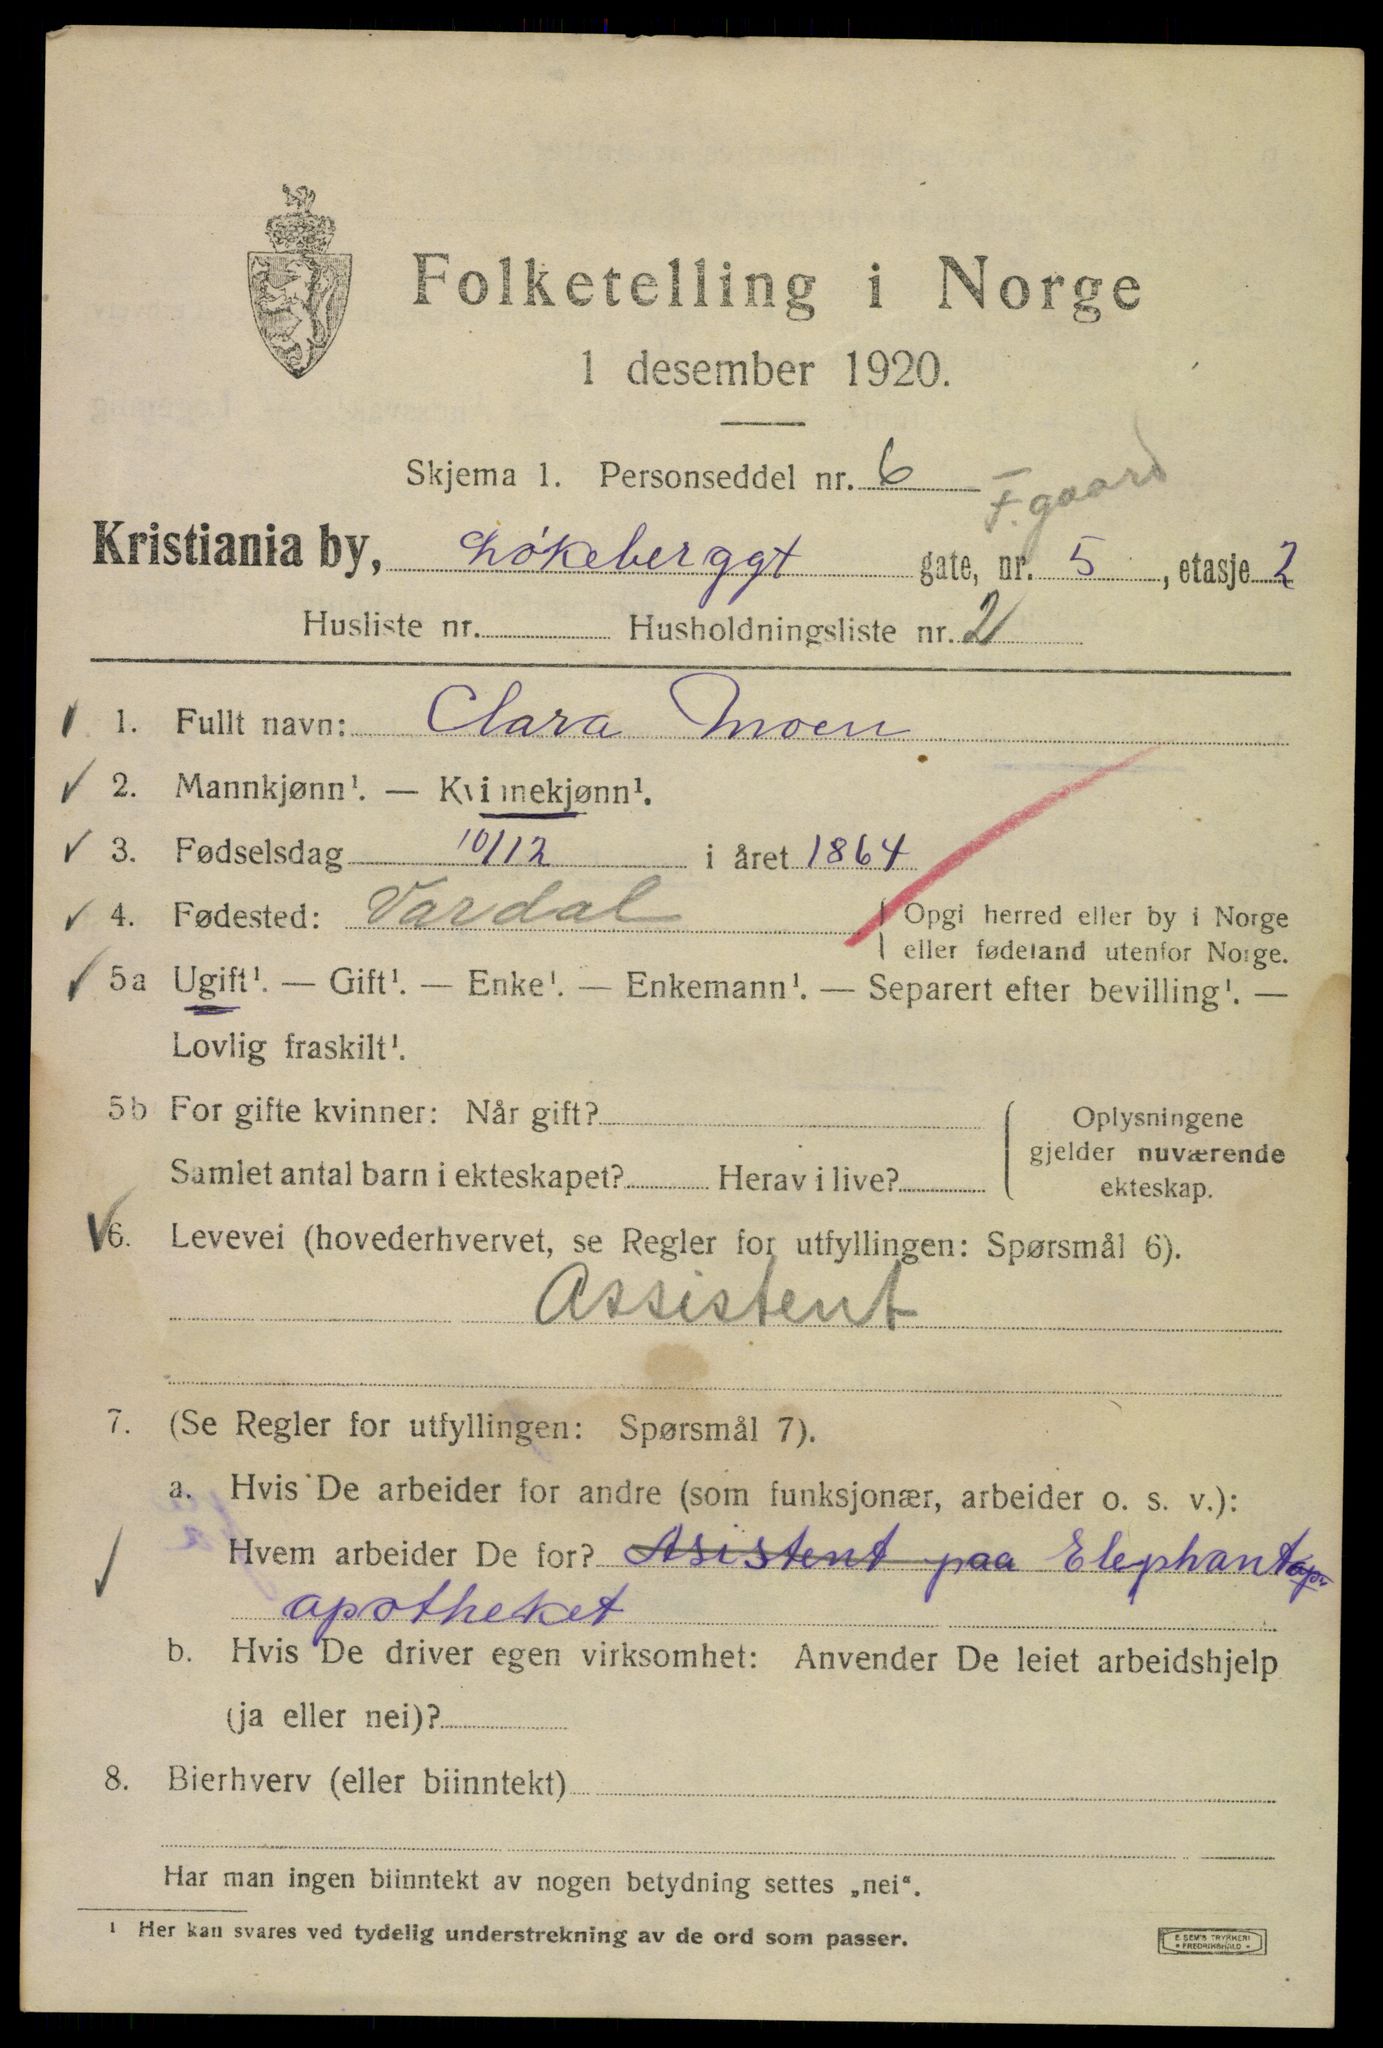 Folketelling i Norge
1 desember 1920.
Skjema 1. Personseddel nr. 6
F.gaard
Kristiania by, Løkeberggt gate, nr. 5, etasje 2
Husliste nr. Husholdningsliste nr. 2
1. Fullt navn: Clara Moen
2. Mannkjønn¹. — Kvinnekjønn¹.
3. Fødselsdag 10/12 i året 1864
4. Fødested: Vardal { Opgi herred eller by i Norge
eller fødeland utenfor Norge.
5a Ugift¹. — Gift¹. — Enke¹. — Enkemann¹. — Separert efter bevilling¹. —
Lovlig fraskilt¹.
5b For gifte kvinner: Når gift?
Samlet antal barn i ekteskapet? Herav i live?
Oplysningene
gjelder nuværende
ekteskap.
6. Levevei (hovederhvervet, se Regler for utfyllingen: Spørsmål 6).
Assistent
7. (Se Regler for utfyllingen: Spørsmål 7).
a. Hvis De arbeider for andre (som funksjonær, arbeider o. s. v.):
Hvem arbeider De for? Asistent paa Elephant
apotheket
b. Hvis De driver egen virksomhet: Anvender De leiet arbeidshjelp
(ja eller nei)?
8. Bierhverv (eller biinntekt)
Har man ingen biinntekt av nogen betydning settes „nei“.
¹ Her kan svares ved tydelig understrekning av de ord som passer.
E. SEM'S TRYKKERI
• FREDRIKSHALD •